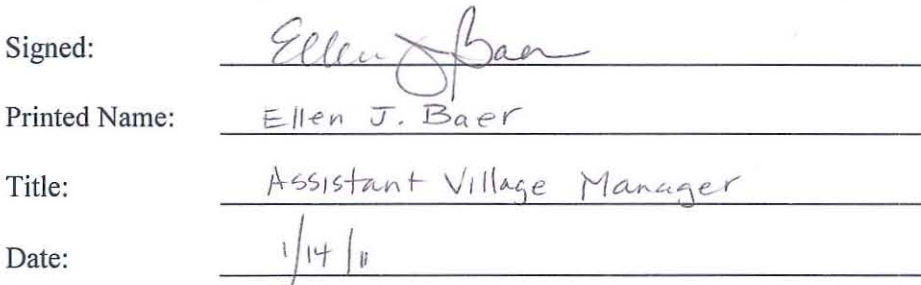 Signed: Ellen J Baer
Printed Name: Ellen J. Baer
Title: Assistant Village Manager
Date: 1/14/11